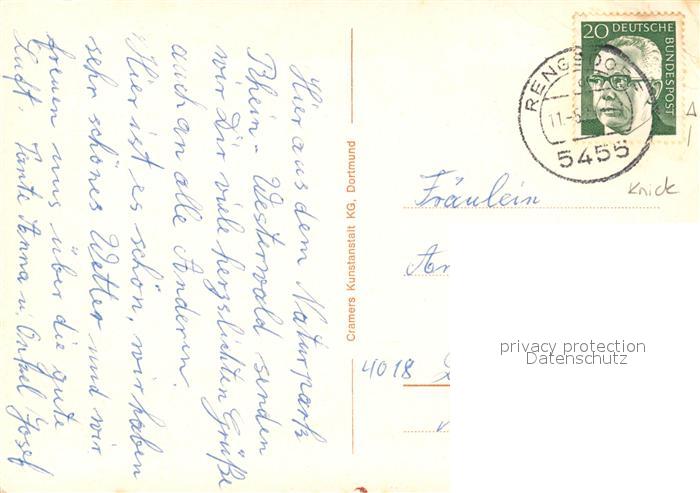 Hier aus dem Naturpark
Rhein-Westerwald senden
wir Dir viele herzlichten Grüße
auch an alle Anderen.
Hier ist es schön, wir haben
sehr schönes Wetter und wir
freuen uns über die gute
Luft. Tante Anna u. Onkel Josef
Cramers Kunstanstalt KG, Dortmund
20 DEUTSCHE
BUNDESPOST
RENGSDORF
11.-5
5455
Knick
Fräulein
An
4018
privacy protection
Datenschutz